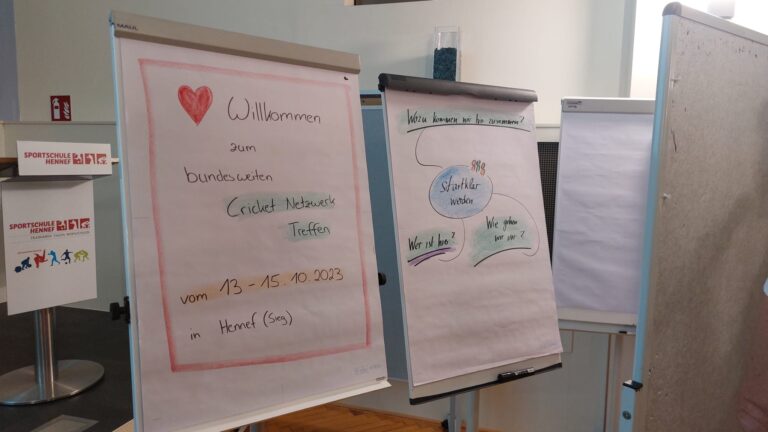 Willkommen
zum
bundesweiten
Cricket Netzwerk
Treffen
vom 13 - 15.10.2023
in Hennef (Sieg)
Wozu kommen wir hier zusammen?
Startklar
werden
Wer ist hier?
Wie gehen
wir vor?
SPORTSCHULE
HENNEF
SPORTSCHULE
HENNEF